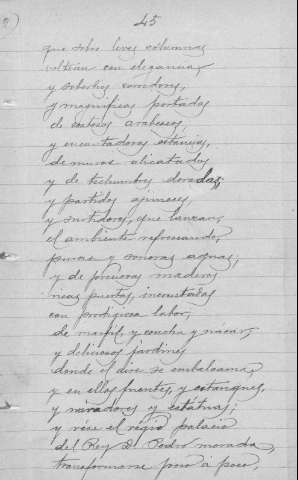 45
que sobre leves columnas
voltean con elegancia,
y soberbios corredores,
y magníficas portadas
de costosos arabescos,
y encantadoras estancias,
de muros alicatados
y de techumbres doradas;
y partidos ajimeces
y surtidores, que lanzan,
el ambiente refrescando,
puras y sonoras aguas;
y de preciosas maderas
ricas puertas, incrustadas
con prodigiosa labor,
de marfil, y concha y nácar;
y deliciosos jardines
donde el aire se embalsama,
y en ellos fuentes, y estanques,
y miradores y estatuas;
y vése el regio palacio
del Rey D. Pedro morada,
transformarse poco á poco,